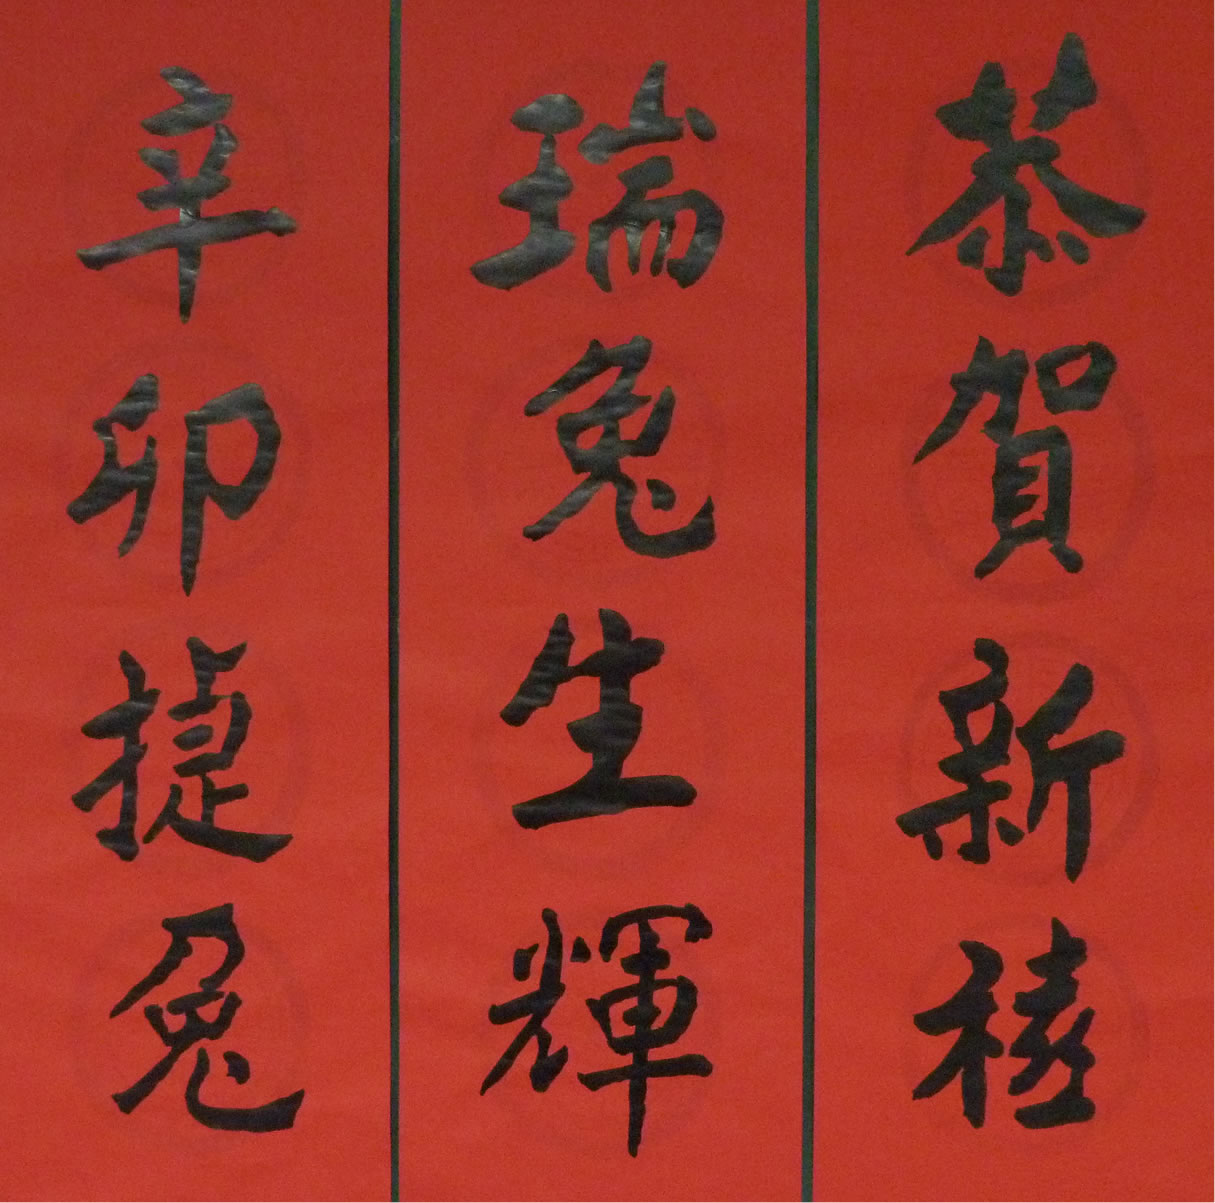 恭賀新禧
瑞兔生輝
辛卯捷兔